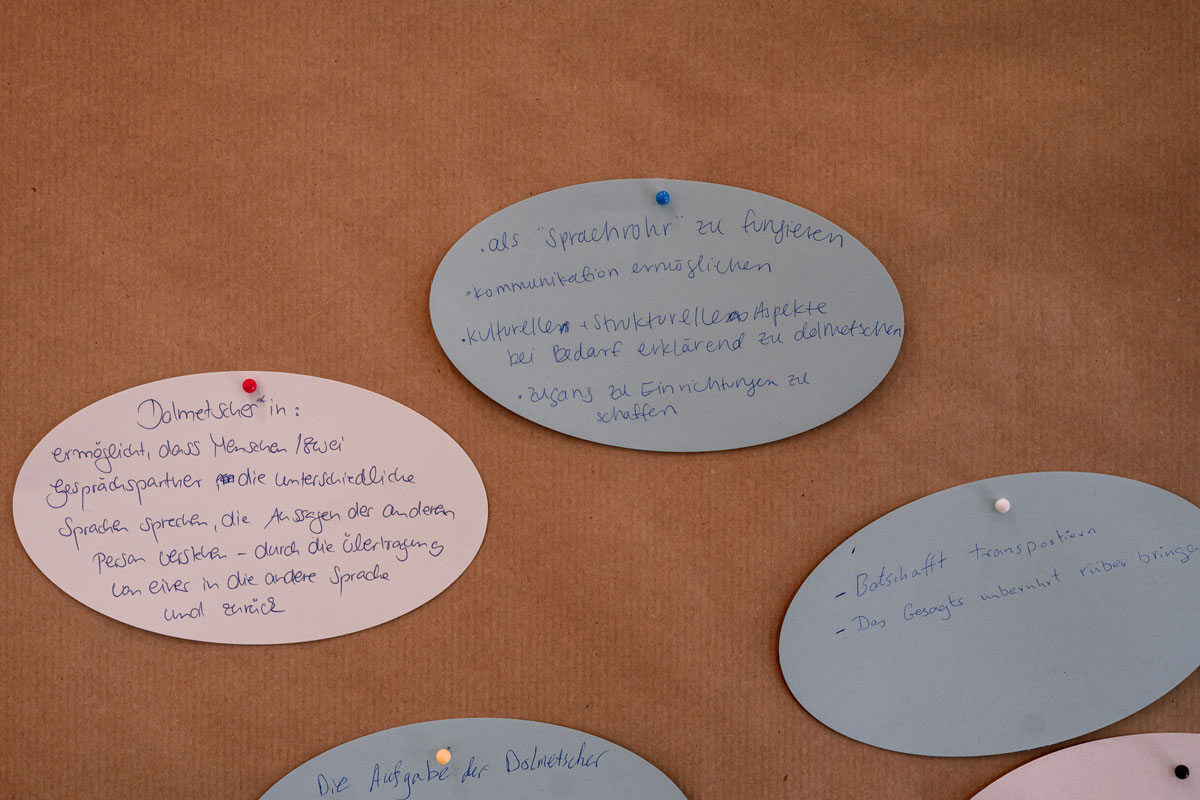 · als "Sprachrohr" zu fungieren
· Kommunikation ermöglichen
· kulturelle + strukturelle Aspekte
bei Bedarf erklärend zu dolmetschen
· Zugang zu Einrichtungen zu
schaffen
Dolmetscher*in:
ermöglicht, dass Menschen / zwei
Gesprächspartner die unterschiedliche
Sprachen sprechen, die Aussagen der anderen
Person verstehen – durch die Übertragung
von einer in die andere Sprache
und zurück
– Botschafft transportiern
– Das Gesagts unberührt rüber bringen
Die Aufgabe der Dolmetscher